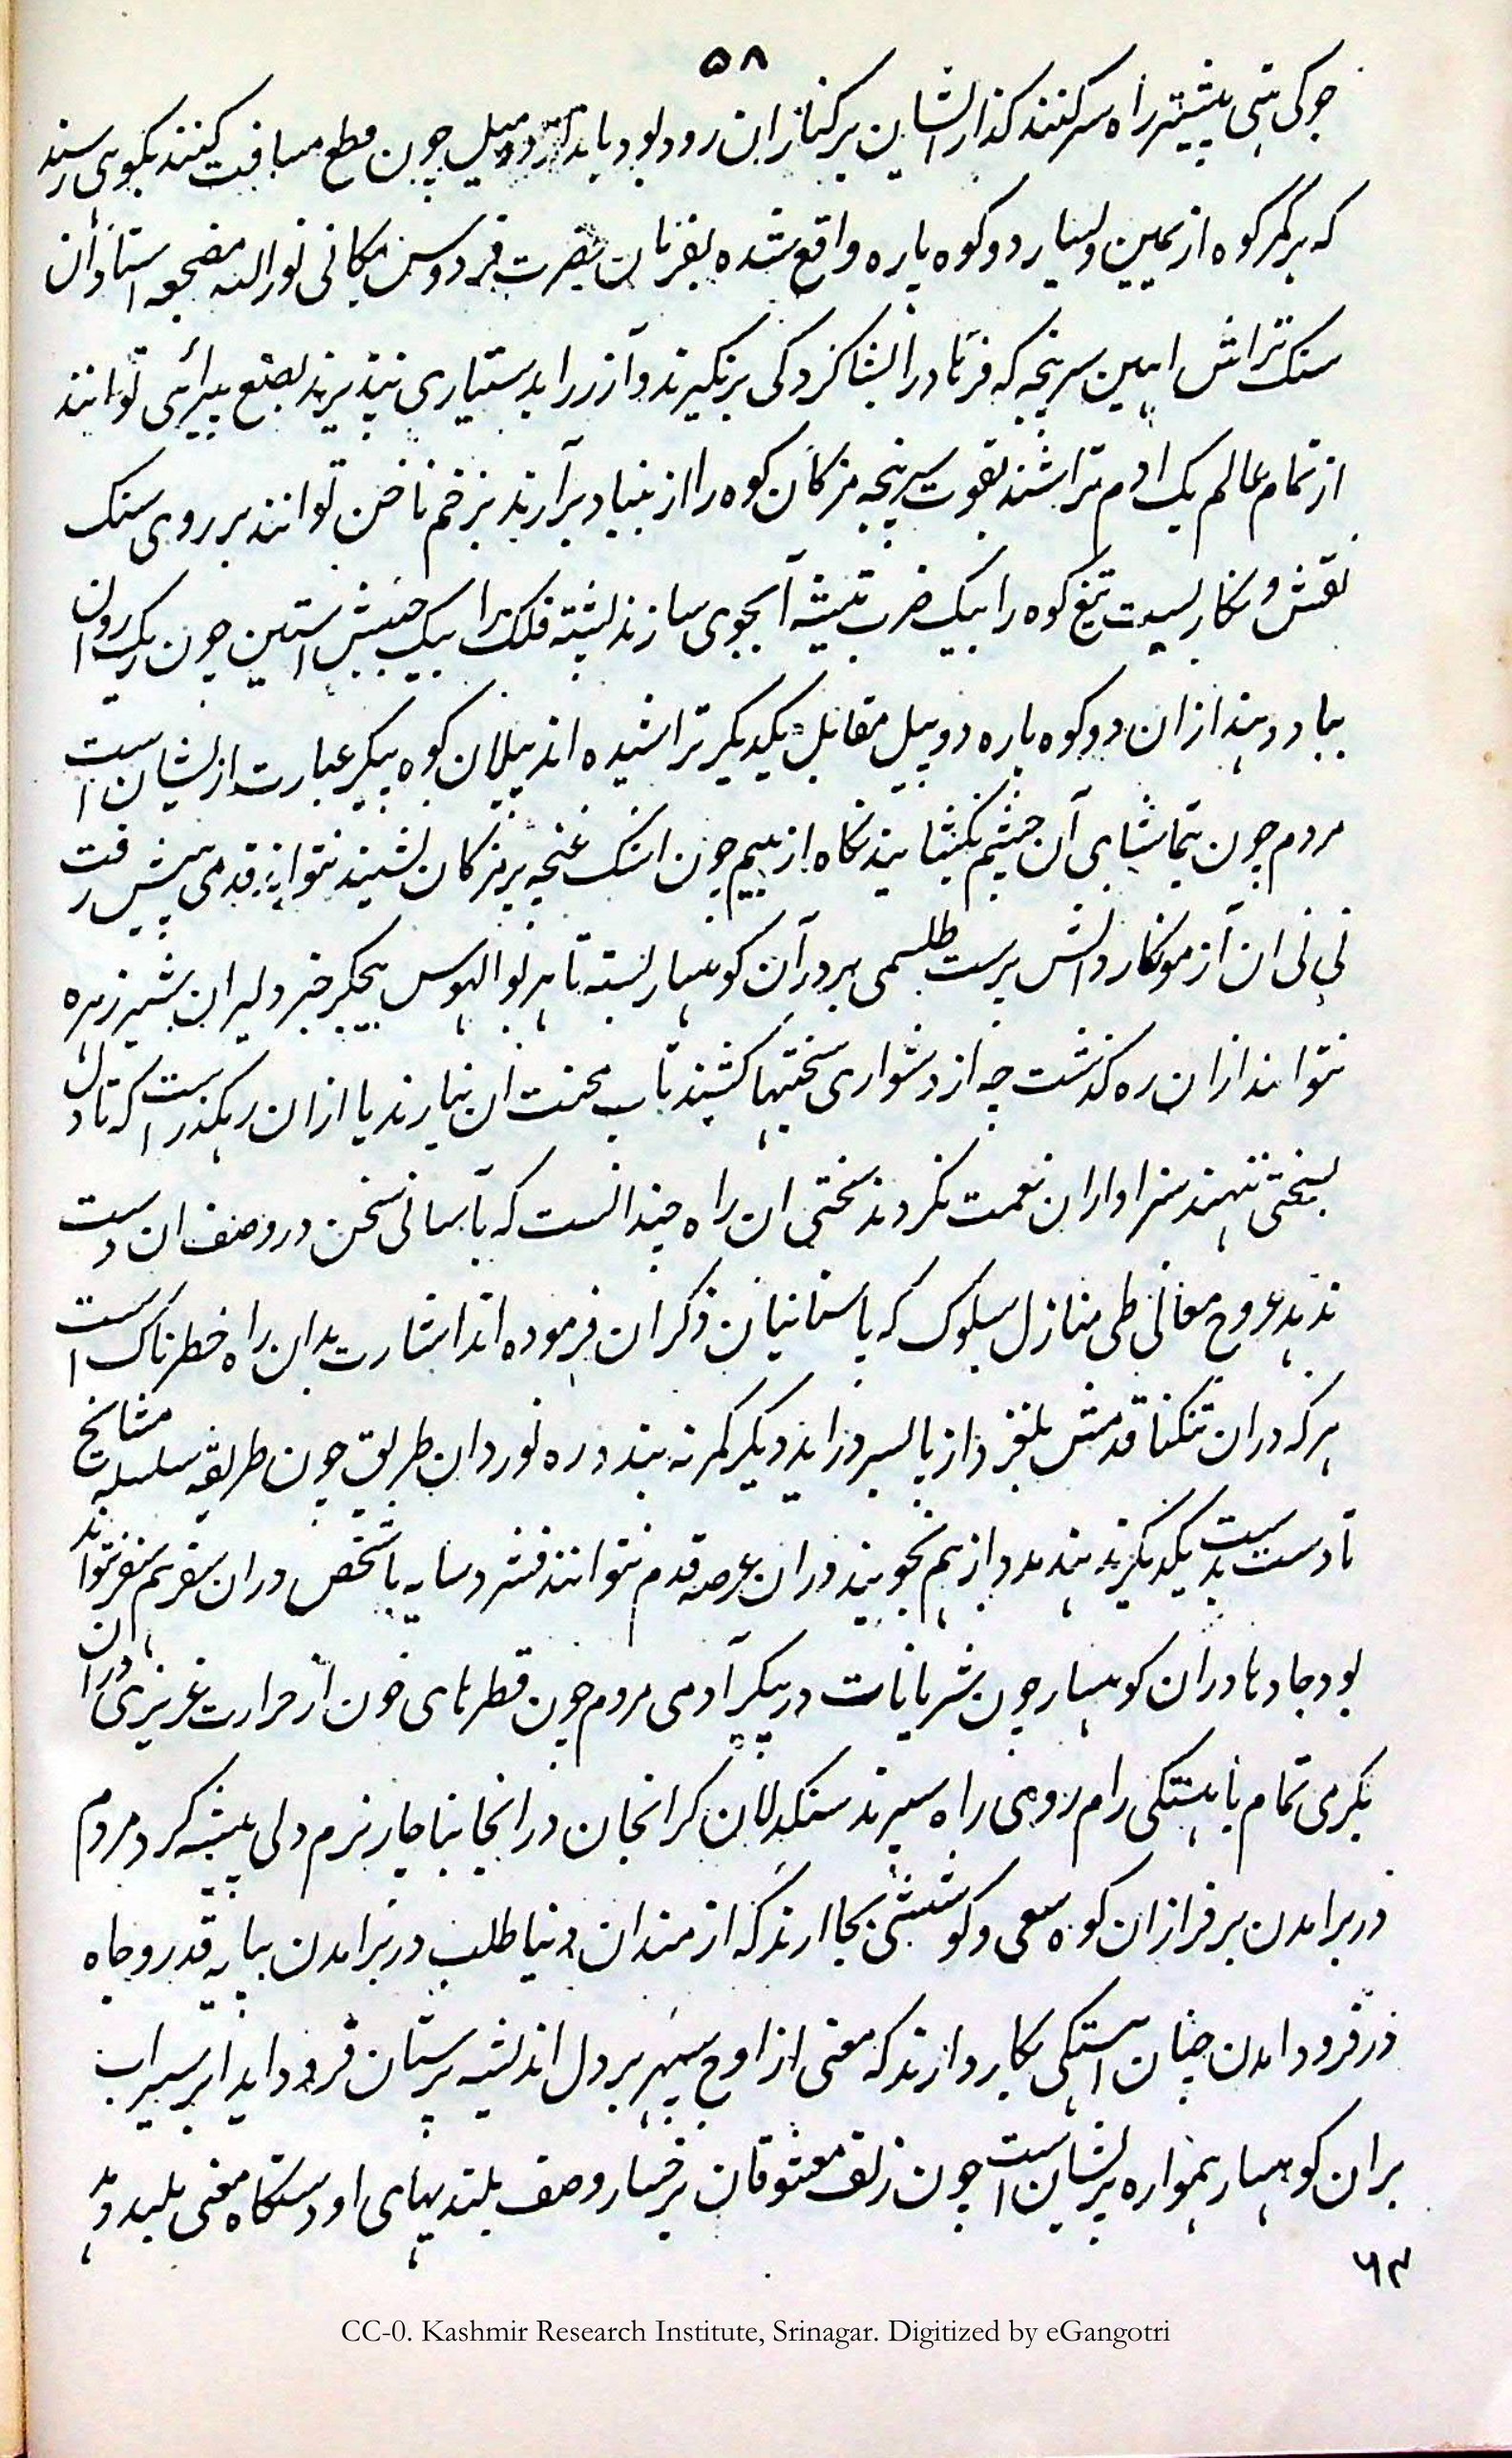 ۵۸
جوکی هتی پیشتر راه سر کنند کذار ایشان بر کنار ان رود بود باید کز دو میل چون قطع مسافت کنند بکوهی رسند
که بر کمر کوه از یمین و یسار دو کوه پاره واقع شده بفرمان حضرت فردوس مکانی نور الله مضجعه استادان
سنک تراش اهنین سرپنجه که فرهاد را بشاکردکی برنکیرند و آزر را بدستیاری نپذیرند بصنع پیرائی توانند
از تمام عالم یک ادم تراشند بقوت سرپنجه مژکان کوه را از بنیاد برآرند بزخم ناخن توانند بر روی سنک
نقش و نکار بست تیغ کوه را بیک ضرب تیشه آبجوی سازند پشته فلک را بیک جنبش استین چون ریک روان
بباد دهند ازان دو کوه پاره دو پیل مقابل یکدیکر تراشیده اند پیلان کوه پیکر عبارت ازیشان است
مردم چون بتماشای آن چشم بکشایند نکاه از بیم چون اشک غنچه بر مژکان نشیند نتواند قدمی پیش رفت
نی نی ان آزمونکار دانش پرست طلسمی بر در آن کوهسار بسته تا هر بوالهوس بیجکر جز دلیران شیر زهره
نتوانند ازان ره کذشت چه از دشواری سختیها کشند تاب محنت ان نیارند یا ازان رهکذر است که تا دل
بسختی ننهند سزاوار ان نعمت نکردند سختی ان راه چندانست که بآسانی سخن در وصف ان دست
ندهد عروج معانی طی منازل سلوک که باستانیان ذکر ان فرموده اند اشارت بدان راه خطرناک است
هر که دران تنکنا قدمش بلغزد از پا بسر دراید دیکر کمر نه بندد ره نوردان طریق چون طریقه سلسله مشایخ
تا دست بدست یکدیکر ندهند مدد از هم نجویند دران عرصه قدم نتوانند فشرد سایه با شخص دران سفر همسفر نتواند
بود جادها دران کوهسار چون شریانات در پیکر آدمی مردم چون قطرهای خون از حرارت غریزی دران
بکرمی تمام باهستکی رام روهی راه سپرند سنکدلان کرانجان درانجا بناچار نرم دلی پیشه کرد مردم
در برامدن بر فراز ان کوه سعی و کوششی بجا ارند که ازمندان دنیا طلب در برامدن بپایه قدر و جاه
در فرود امدن چنان اهستکی بکار دارند که معنی از اوج سپهر بر دل اندیشه پرستان فرود اید ابر سیراب
بران کوهسار همواره پریشان است چون زلف معشوقان بر رخسار وصف بلندیهای او دستکاه معنی بلند دهد
۶۳
CC-0. Kashmir Research Institute, Srinagar. Digitized by eGangotri